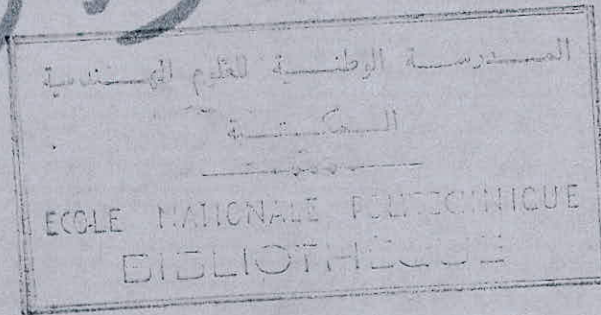 المدرسة الوطنية للعلوم الهندسية
المكتبة
ECOLE NATIONALE POLYTECHNIQUE
BIBLIOTHEQUE